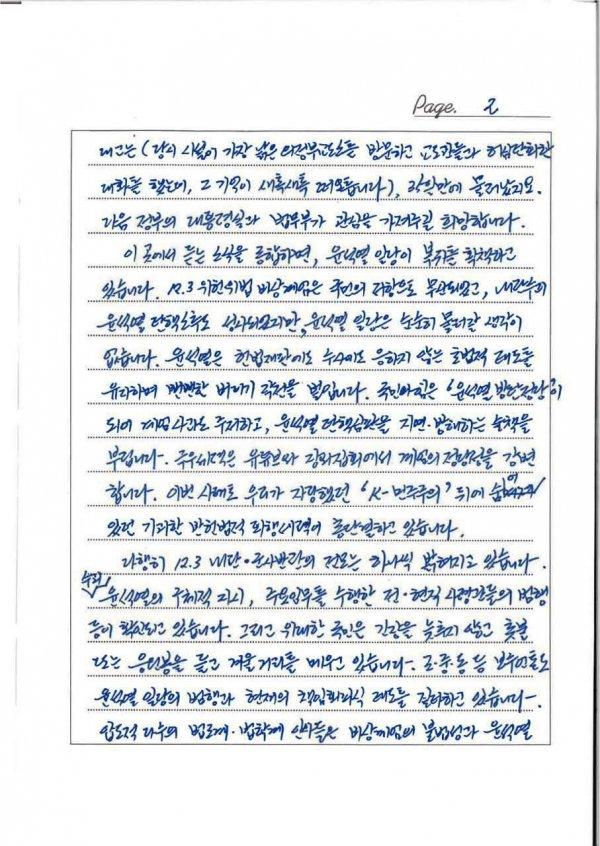 Page. 2
대고는 (당시 시설이 가장 낡은 의정부교도소를 방문하고 교도관들과 허심탄회한
대화를 했는데, 그 기억이 새록새록 떠오릅니다), 장관만에 물러났지요.
다음 정부의 대통령실과 법무부가 관심을 가져주길 희망합니다.
이 곳에서 듣는 소식을 종합하면, 윤석열 일당이 복귀를 획책하고
있습니다. 12.3 위헌위법 비상계엄은 국민의 저항으로 무산되었고, 내란수괴
윤석열 탄핵소추도 성사되었지만, 윤석열 일당은 순순히 물러날 생각이
없습니다. 윤석열은 헌법재판에도 수사에도 응하지 않는 호법적 태도를
유지하며 뻔뻔한 버티기 작전을 벌입니다. 국민의힘은 '윤석열 방탄정당'이
되어 계엄 사과도 주저하고, 윤석열 탄핵심판을 지연·방해하는 술책을
부립니다. 극우세력은 유튜브와 광화문집회에서 계엄의 정당성을 강변
합니다. 이번 사태로 우리가 자랑했던 'K-민주주의' 뒤에 숨어
있던 기괴한 반헌법적 퇴행세력이 총단결하고 있습니다.
다행히 12.3 내란·군사반란의 전모는 하나씩 밝혀지고 있습니다.
수괴 윤석열의 구체적 지시, 주요임무를 수행한 전·현직 사령관들의 범행
등이 확인되고 있습니다. 그리고 위대한 국민은 긴장을 늦추지 않고 촛불
또는 응원봉을 들고 겨울 거리를 메우고 있습니다. 조·중·동 등 보수언론도
윤석열 일당의 범행과 현재의 책임회피식 태도를 질타하고 있습니다.
압도적 다수의 법조계·법학계 인사들은 비상계엄의 불법성과 윤석열